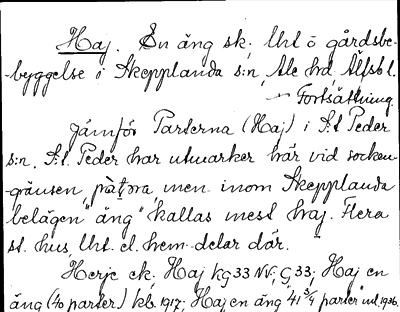 Haj. En äng sk. Uht o gårdsbe-
byggelse i Skepplanda s:n, Ale hd, Älfsb l.
Fortsättning.
Jämför Parterna (Haj) i S:t Peder
s:n. S:t Peder har utmarker här vid socken-
gränsen, men inom Skepplanda
belägen "äng" kallas mest haj. Flera
st. hus, Uht. el. hem-delar där.
Herje ek. Haj kg 33 NV, G 33; Haj en
äng (40 parter) kb. 1917; Haj en äng, 41 5/9 parter